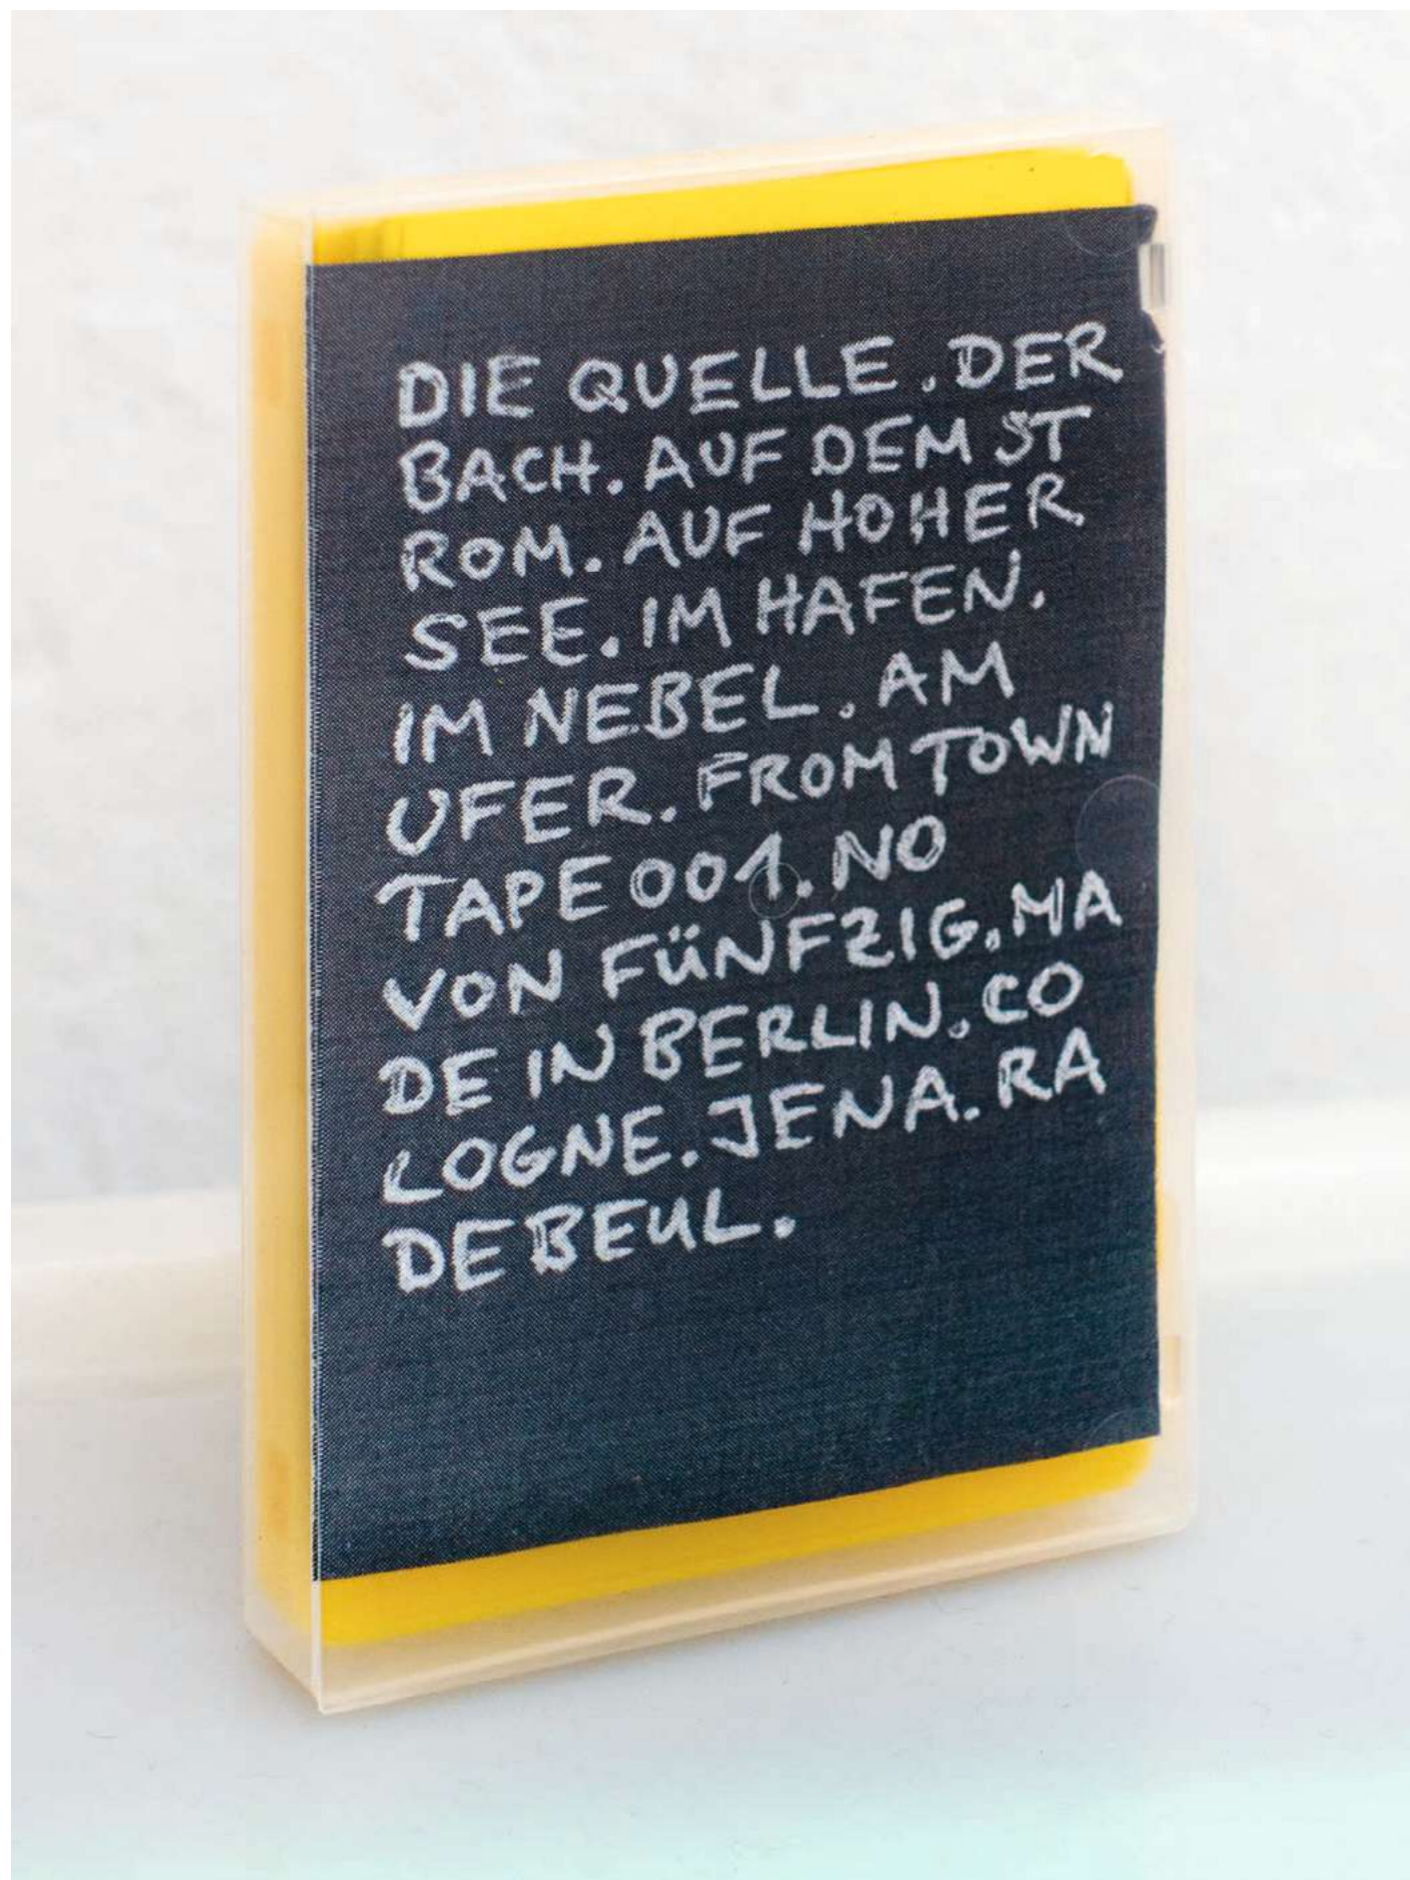 DIE QUELLE. DER
BACH. AUF DEM ST
ROM. AUF HOHER
SEE. IM HAFEN.
IM NEBEL. AM
UFER. FROM TOWN
TAPE 001. NO
VON FÜNFZIG. MA
DE IN BERLIN. CO
LOGNE. JENA. RA
DEBEUL.